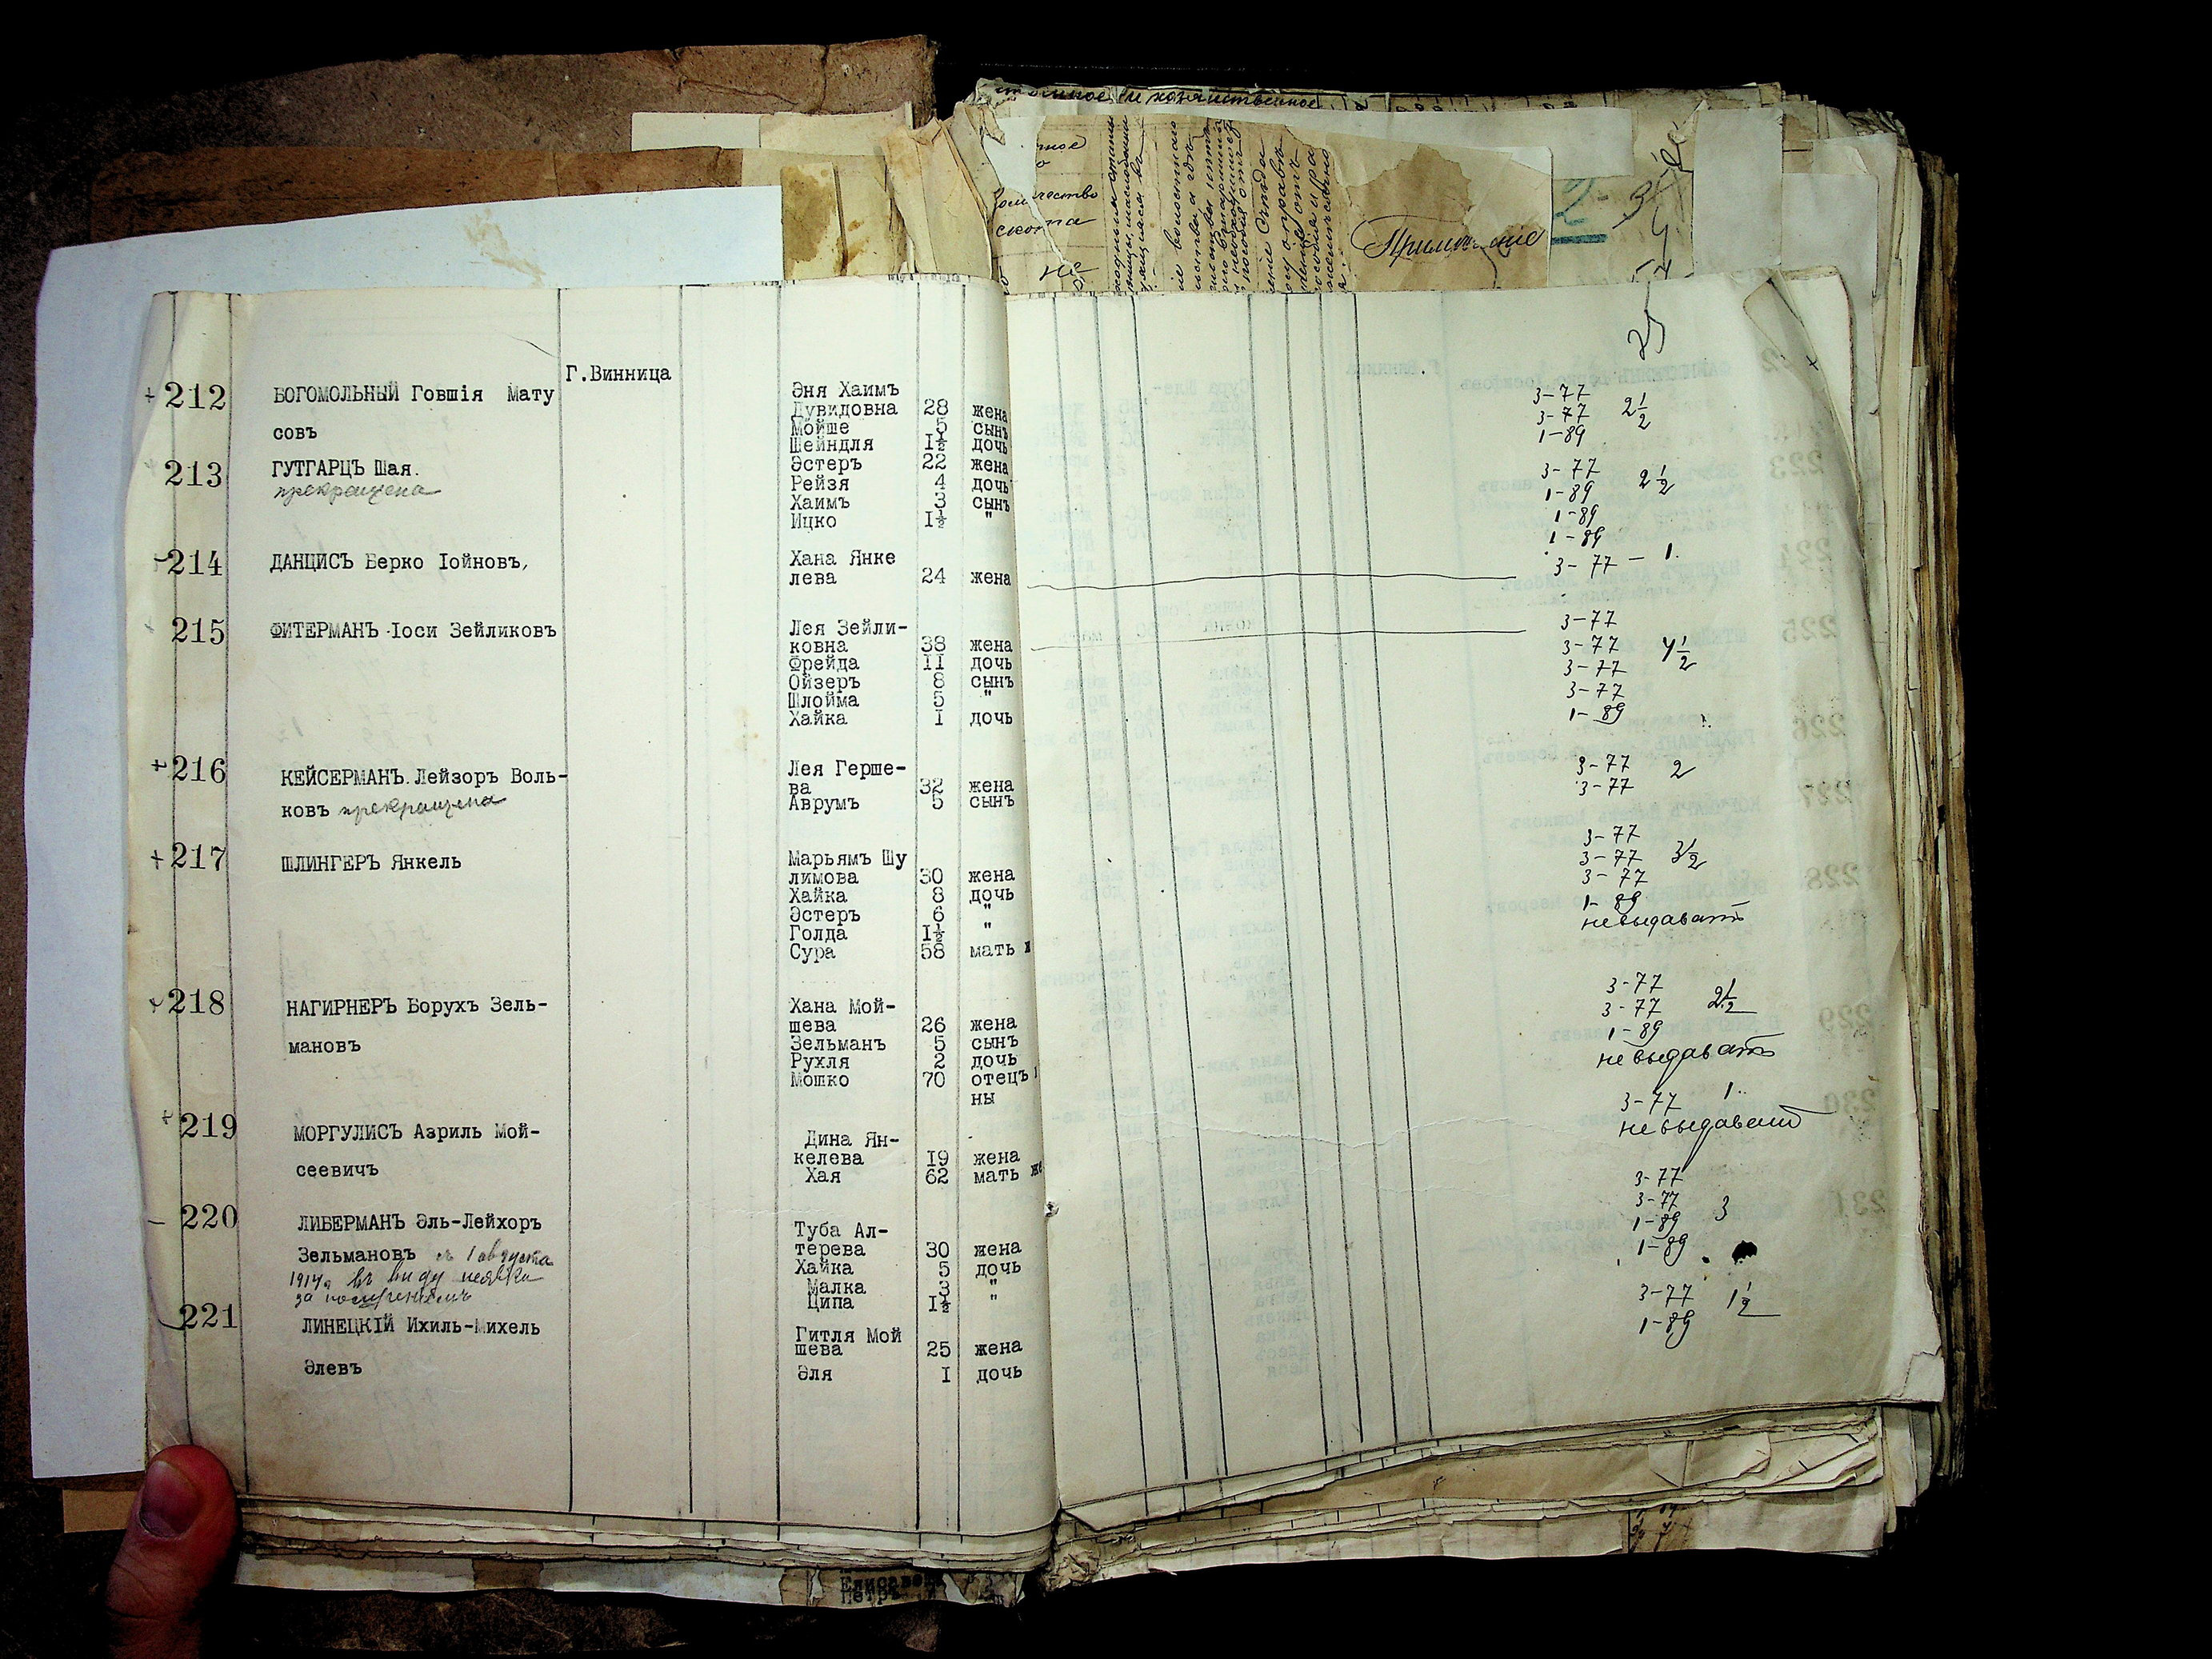 Количество
скота
не
Примечание
Г.Винница
212 БОГОМОЛЬНЫЙ Говшія Мату
совъ
Эня Хаимъ
Дувидовна 28 жена
Мойше 5 сынъ
Шейндля I½ дочь
3-77
3-77 2½
1-89
213 ГУТГАРЦЪ Шая.
прекращена
Эстеръ 22 жена
Рейзя 4 дочь
Хаимъ 3 сынъ
Ицко I½ "
3-77
1-89 2½
1-89
1-89
214 ДАНЦИСЪ Берко Іойновъ,
Хана Янке
лева 24 жена
3-77 — 1.
215 ФИТЕРМАНЪ Іоси Зейликовъ
Лея Зейли-
ковна 38 жена
Фрейда II дочь
Ойзеръ 8 сынъ
Шлойма 5 "
Хайка I дочь
3-77
3-77 4½
3-77
3-77
1-89
216 КЕЙСЕРМАНЪ Лейзоръ Воль-
ковъ прекращена
Лея Герше-
ва 32 жена
Аврумъ 5 сынъ
3-77 2
3-77
217 ШЛИНГЕРЪ Янкель
Марьямъ Шу
лимова 30 жена
Хайка 8 дочь
Эстеръ 6 "
Голда I½ "
Сура 58 мать
3-77
3-77 3½
3-77
1-89
невыдавать
218 НАГИРНЕРЪ Борухъ Зель-
мановъ
Хана Мой-
шева 26 жена
Зельманъ 5 сынъ
Рухля 2 дочь
Мошко 70 отецъ
ны
3-77
3-77 2½
1-89
невыдавать
219 МОРГУЛИСЪ Азриль Мой-
сеевичъ
Дина Ян-
келева I9 жена
Хая 62 мать же
3-77 1.
невыдавать
220 ЛИБЕРМАНЪ Эль-Лейхоръ
Зельмановъ съ 1 августа
1917 г. въ виду неявки
за
Туба Ал-
терева 30 жена
Хайка 5 дочь
Малка 3 "
Ципа I½ "
3-77
3-77 3
1-89
1-89
221 ЛИНЕЦКІЙ Ихиль-Михель
Элевъ
Гитля Мой
шева 25 жена
Эля I дочь
3-77 1½
1-89